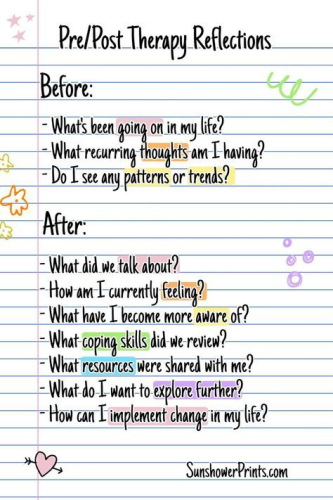 Pre/Post Therapy Reflections
Before:
- What's been going on in my life?
- What recurring thoughts am I having?
- Do I see any patterns or trends?
After:
- What did we talk about?
- How am I currently feeling?
- What have I become more aware of?
- What coping skills did we review?
- What resources were shared with me?
- What do I want to explore further?
- How can I implement change in my life?
SunshowerPrints.com